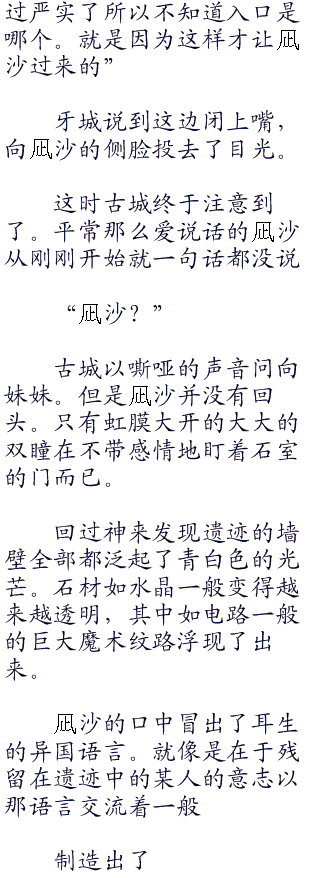 过严实了所以不知道入口是
哪个。就是因为这样才让凪
沙过来的”
牙城说到这边闭上嘴，
向凪沙的侧脸投去了目光。
这时古城终于注意到
了。平常那么爱说话的凪沙
从刚刚开始就一句话都没说
“凪沙？”
古城以嘶哑的声音问向
妹妹。但是凪沙并没有回
头。只有虹膜大开的大大的
双瞳在不带感情地盯着石室
的门而已。
回过神来发现遗迹的墙
壁全部都泛起了青白色的光
芒。石材如水晶一般变得越
来越透明，其中如电路一般
的巨大魔术纹路浮现了出
来。
凪沙的口中冒出了耳生
的异国语言。就像是在于残
留在遗迹中的某人的意志以
那语言交流着一般
制造出了